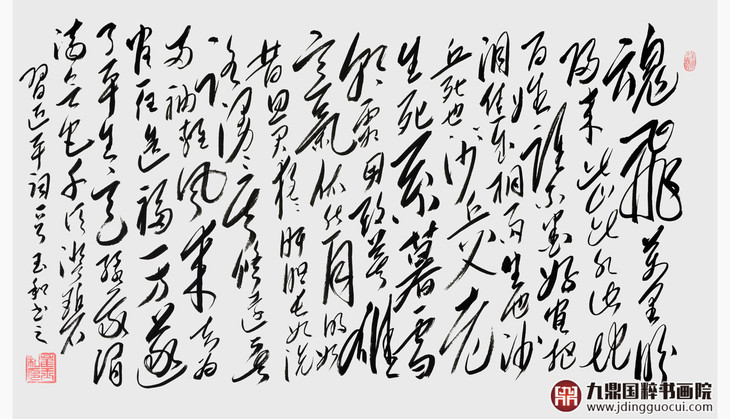 魂飛万里盼
归来此水此山此地
百姓谁不爱好官把
泪焦桐成雨生也沙
丘死也沙丘父老
生死系暮雪
朝霜毋改英雄
意氣依然月明如
昔思君夜夜肝胆长如洗
路漫漫其修远矣
两袖清风来去为
官一任造福一方遂
了平生意绿我涓
滴会它千顷澄碧
习近平词 玉和书之
九鼎国粹书画院
www.jdingguocui.com